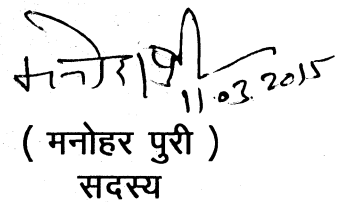 मनोहर पुरी
11.03.2015
( मनोहर पुरी )
सदस्य